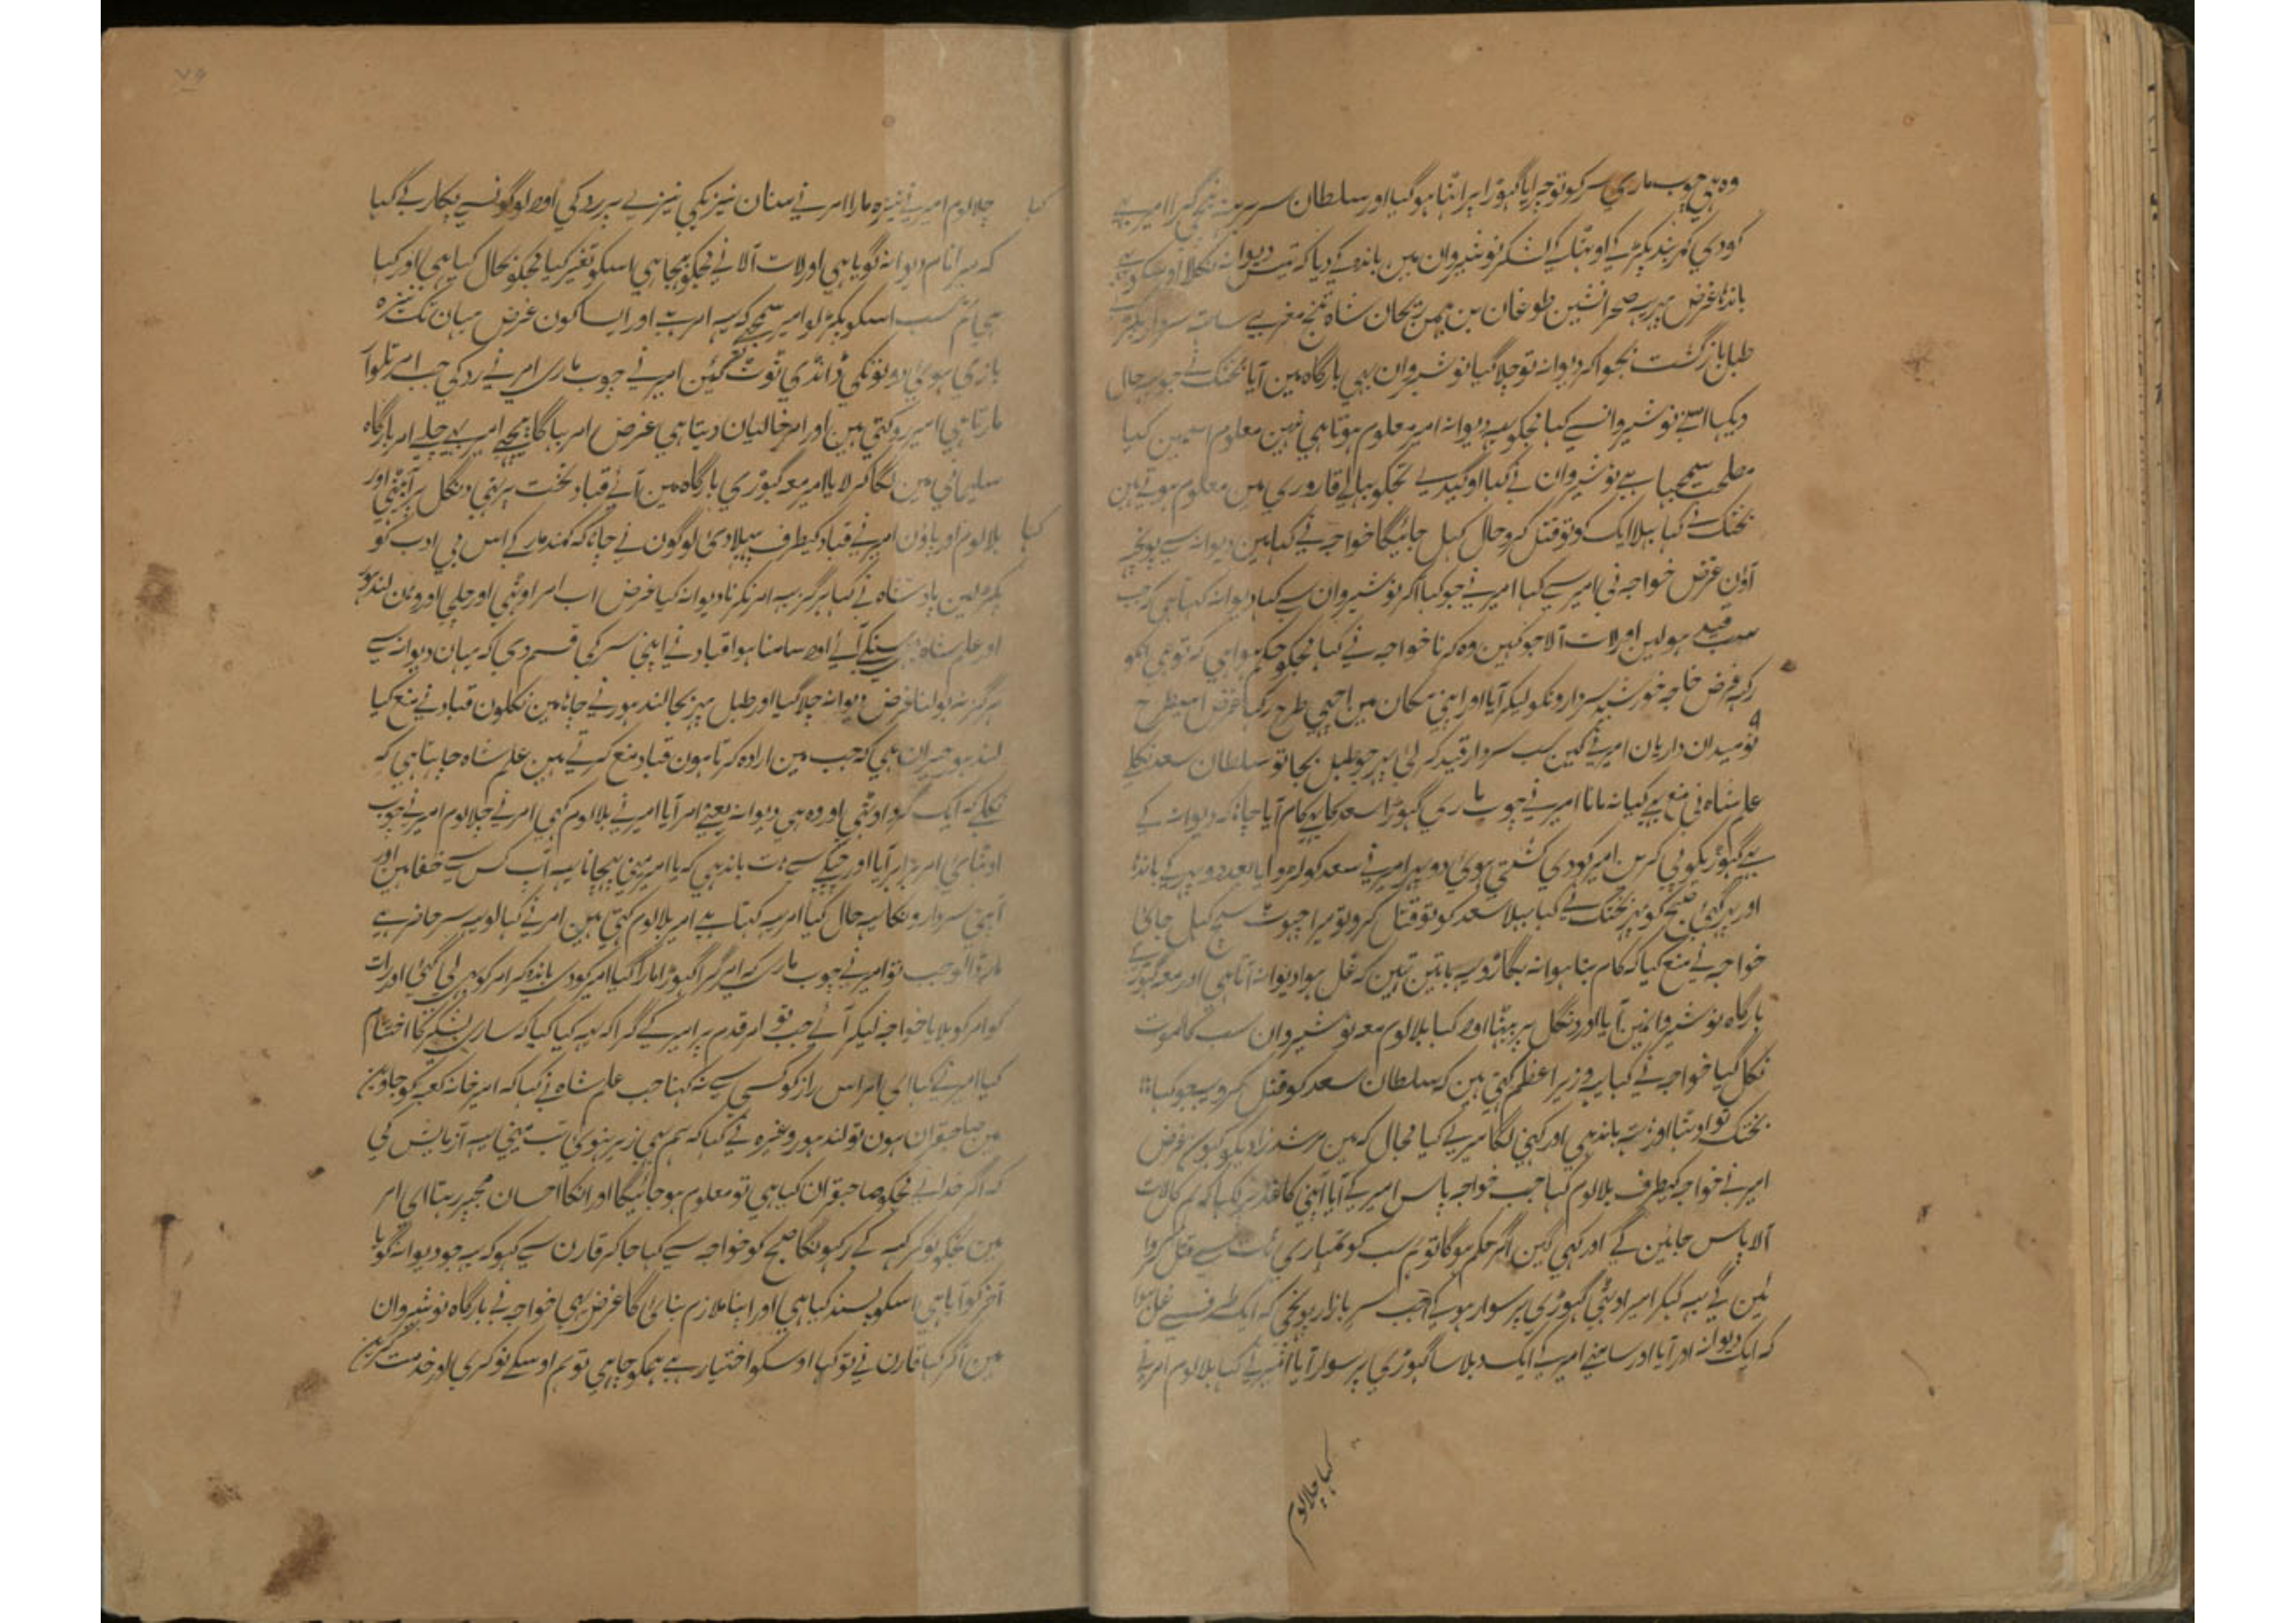 وہ ہی چوب ماری سر کو تو چرایا گہوڑا پر اتنا ہو گیا اور سلطان سر برہنہ گرا امیر نے
کودی کمر بند پکڑ کے اوٹہا کے لشکر نوشیروان مین باندہ کے دیا کہ دیوانہ نکلا اوسکو بہی
باندہا غرض صحرا نشین طوغان بن بہمن ریحان شاہ مغربی ساتہہ سردار پکڑے
طبل بازگشت بجوا کر دیوانہ تو چلا گیا نوشیروان بہی بارگاہ مین آیا بختک نے جو یہ حال
دیکہا اسنے نوشیروان سے کہا مجکو یہ دیوانہ امیر معلوم ہوتا ہی نہین معلوم اسمین کیا
مصلحت سمجہا ہے نوشیروان نے کہا او گیدی تجکو پیالے قاروری مین معلوم ہوتے ہین
بختک نے کہا بہلا ایک کو تو قتل کرو حال کہل جائیگا خواجہ نے کہا مین دیوانہ سے پوچہہ
آؤن غرض خواجہ نی امیر سے کہا امیر نے جو کہا آکر نوشیروان سے کہا دیوانہ کہتا ہی کہ جب
سب قید ہولین اور لات آلا جو کہین وہ کرنا خواجہ نے کہا مجکو حکم ہوا ہی کہ تو ہی انکو
رکہہ غرض خواجہ خوش سردارونکو لیکر آیا اور اپنی مکان مین اچہی طرح رکہا غرض اسیطرح
نو میدان داریان امیر نے کین سب سردار قید کر لئے پہر جو طبل بجا تو سلطان سعد نکلے
علم شاہ نی منع کیا نہ مانا امیر نے چوب ماری گہوڑا سعد کا کام آیا جانا کہ دیوانہ کے
گہوڑیکو پی کرین امیر کودی کشتی ہوی دوپہر امیر نے سعد کو بعد دوپہر کے باندہا
اور پہر گئے صبح کو پہر بختک نے کہا بہلا سعد کو تو قتل کرو تو میرا جہوٹ سچ کہل جائے
خواجہ نے منع کیا کہ کام بنا ہوا نہ بگاڑو یہ باتین تہین کہ غل ہوا دیوانہ آتا ہی اور معہ گہوڑے
بارگاہ نوشیروانمین آیا اور دنگل پر بیٹہا اور کہا بلالوم معہ نوشیروان سب کا موت
نکل گیا خواجہ نے کہا یہ وزیر اعظم کہتے ہین کہ سلطان سعد کو قتل کرو یہ جو کہا
بختک تو اوٹہا اور دست باندہی اور کہنے لگا میری کیا مجال کہ مین مرشد زادیکو کہون غرض
امیر نے خواجہ کیطرف بلالوم کہا جب خواجہ پاس امیر کے آیا اپنی کہ ہم لات
آلا پاس جائین گے اور کہین اگر حکم ہوگا تو ہم سب کو تمہاری ہات سے قتل کروا
ئین گے یہ کہکر امیر اوٹہے گہوڑی پر سوار ہو کے جب سر بازار پہونچے کہ ایک طرف سے غل ہوا
کہ ایک دیوانہ اور آیا اور سامنے امیر کے ایک دبلا سا گہوڑی پر سوار آیا امیر نے کہا بلالوم امیر نے
کہا جلالوم
کہا جلالوم امیر نے نیزہ مارا امر نے سنان نیزیکی نیزے پر رد کی اور لوگونسے پکار کے کہا
کہ میرا نام دیوانہ گویا ہی اور لات آلا نے مجکو بہیجا ہی اسکو تغیر کیا مجکو بحال کیا ہی اور کہا
تم سب اسکو پکڑ لو امیر سمجہے کہ یہ امر ہے اور ایسا کون غرض میان تک نیزہ
بازی ہوئی دونوکی ڈانڈی ٹوٹ گئین امیر نے چوب ماری امر نے رد کی جب امر تلوار
مارتا ہی امیر روکتے ہین اور امر خالیان دیتا ہی غرض امر بہاگا پیچہے امیر بہی چلے امر بارگاہ
سلیمانی مین لگا کر لایا امیر معہ گہوڑی بارگاہ مین آئے قباد تخت پر تہے دنگل پر آ بیٹہے اور
کہا بلالوم اور پاؤن امیر نے قباد کیطرف پہیلا دی لوگون نے چاہا کہ کمند مار کے اس بی ادب کو
پکڑ لین بادشاہ نے کہا ہرگز یہ امر نکرنا دیوانہ کیا غرض اب امیر اوٹہی اور چلی اور وہین لندہور
اور علم شاہ سنکے آئے اور سامنا ہوا قباد نے اپنی سر کی قسم دی کہ میان دیوانہ سے
ہرگز نہ بولنا غرض دیوانہ چلا گیا اور طبل پہر بجا لندہور نے چاہا مین نکلون قباد نے منع کیا
لندہور حیران ہی کہ جب مین ارادہ کرتا ہون قباد منع کرتے ہین علم شاہ چاہتا ہی کہ
نکلے کہ ایک گرد اوٹہی اور وہ ہی دیوانہ یعنے امر آیا امیر نے بلالوم کہی امر نے جلالوم امیر نے چوب
اوٹہائی امر برابر آیا اور چپکے سے دست باندہی کہ یا امیر مینے پہچانا یہ آپ کس سے خفا ہین اور
اپنی سردارونکا یہ حال کیا امر یہ کہتا ہے امیر بلالوم کہتے ہین امر نے کہا لو یہ سر حاضر ہے
مار ڈالو جب تو امیر نے چوب ماری کہ امر گرا گہوڑا مارا گیا امیر کودی باندہ کر امر کو بہی لے گئے اور رات
کو امر کو بلایا خواجہ لیکر آئے جب تو امر قدم پر امیر کے گرا کہ یہ کیا کیا کہ ساری لشکر کا
کیا امیر نے کہا ای امر اس راز کو کسی سے نہ کہنا جب علم شاہ نے کہا کہ امیر خانہ کعبہ کو جاوین
مین صاحبقران ہون تو لندہور وغیرہ نے کہا کہ ہم بہی زیر ہنوی تب مینے یہ آزمایش کی
کہ اگر خدا نے مجکو صاحبقران کیا ہی تو معلوم ہو جائیگا اور انکا احسان مجپر رہتا ای امر
مین تجکو نوکر کہہ کے رکہونگا صبح کو خواجہ سے کہا جا کر قارن سے کہو کہ یہ جو دیوانہ گویا
آخر کو آیا ہی اسکو پسند کیا ہی اور اپنا ملازم بنائیگا غرض یہی خواجہ نے بارگاہ نوشیروان
مین آکر کہا قارن نے تو کہا اوسکو اختیار ہے ہمکو چاہی تو ہم اوسکے نوکری اور خدمت کرین